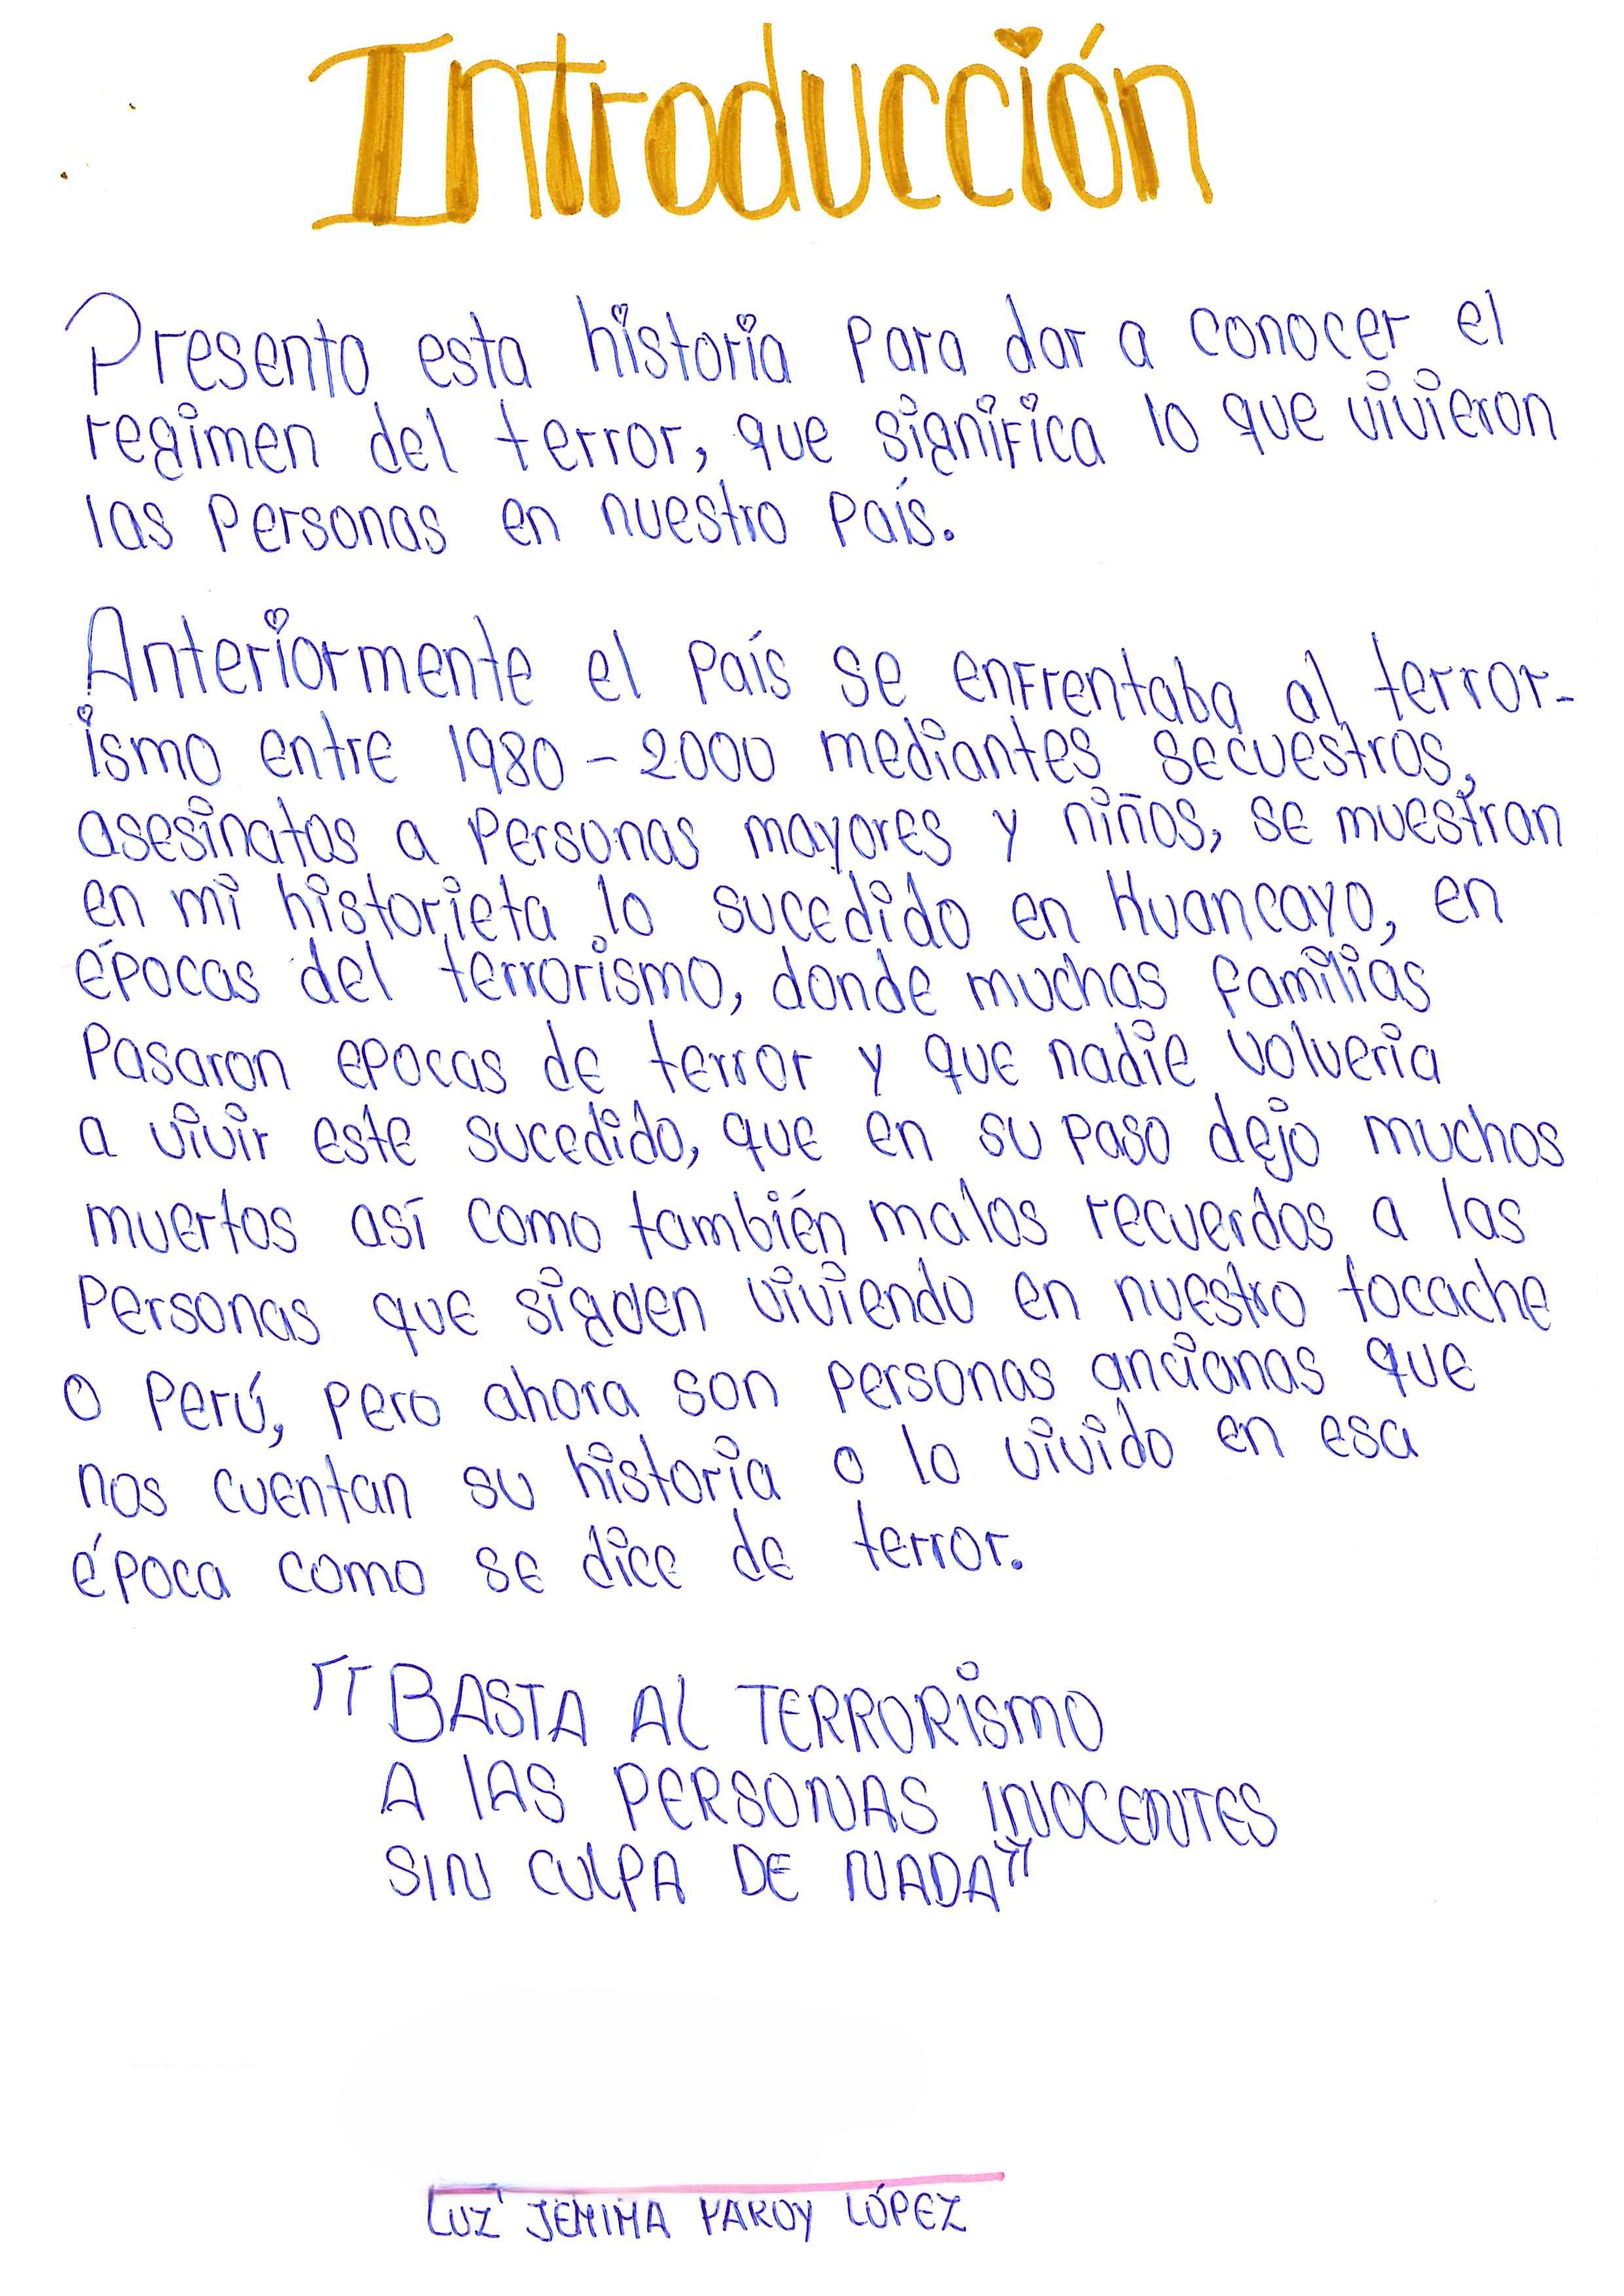 Introducción
Presento esta historia para dar a conocer el
regimen del terror, que significa lo que vivieron
las personas en nuestro país.
Anteriormente el país se enfrentaba al terror-
ismo entre 1980 - 2000 mediantes secuestros,
asesinatos a personas mayores y niños, se muestran
en mi historieta lo sucedido en Huancayo, en
épocas del terrorismo, donde muchas familias
pasaron epocas de terror y que nadie volveria
a vivir este sucedido, que en su paso dejo muchos
muertos así como también malos recuerdos a las
personas que siguen viviendo en nuestro tocache
o Perú, pero ahora son personas ancianas que
nos cuentan su historia o lo vivido en esa
época como se dice de terror.
"BASTA AL TERRORISMO
A LAS PERSONAS INOCENTES
SIN CULPA DE NADA"
LUZ JEMIMA YAROY LÓPEZ